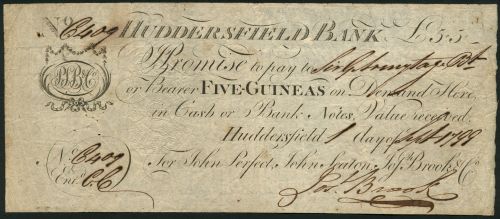 No. C409 HUDDERSFIELD BANK £5"5"-
Promise to pay to
or Bearer FIVE-GUINEAS on Demand Here,
in Cash or Bank Notes, Value received.
Huddersfield 1 day of Sept 1799
No. C409 For John Perfect, John Seaton, Josh. Brook & Co.
Entd.
Jos. Brook